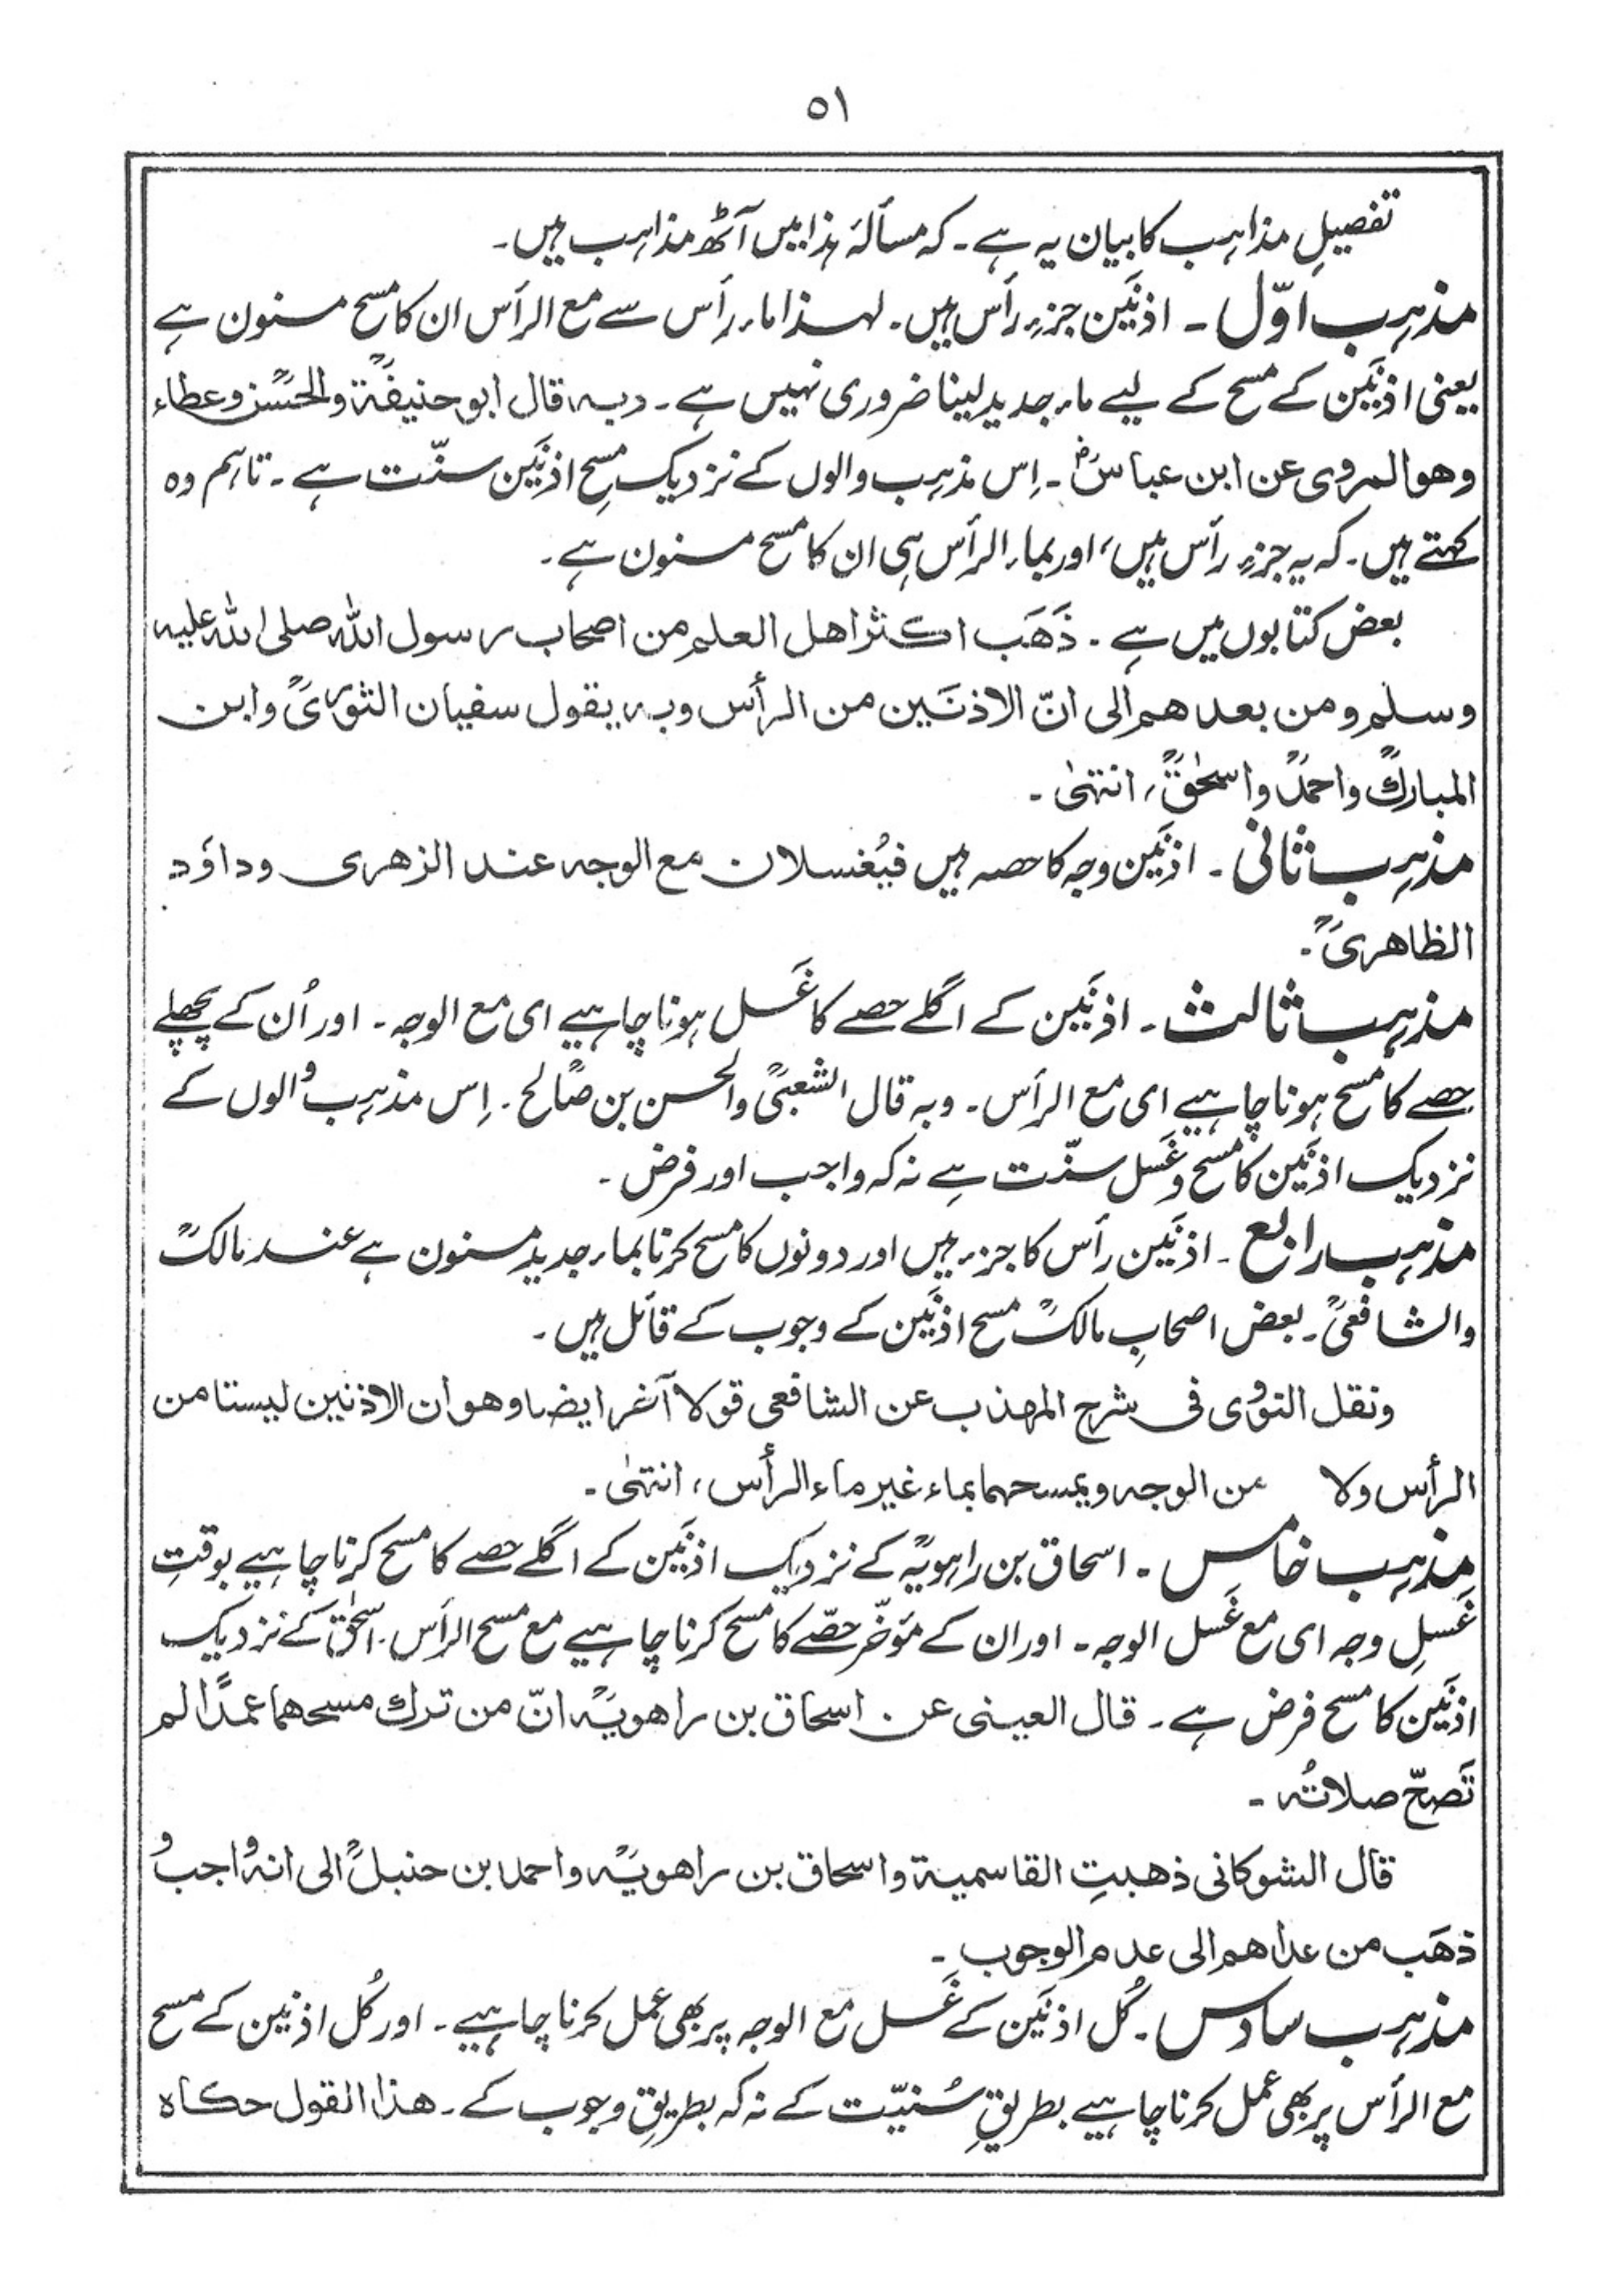 ۵۱
تفصیلِ مذاہب کا بیان یہ ہے۔ کہ مسألۂ ہذا میں آٹھ مذاہب ہیں۔
مذہب اوّل ۔ اذنَین جزءِ رأس ہیں۔ لہذا ماء رأس سے مع الرأس ان کا مسح مسنون ہے
یعنی اذنَین کے مسح کے لیے ماء جدید لینا ضروری نہیں ہے۔ وبہ قال ابو حنیفۃؒ والحسنؒ وعطاء
وھو المروی عن ابن عباسؓ۔ اِس مذہب والوں کے نزدیک مسحِ اذنَین سنّت ہے۔ تاہم وہ
کہتے ہیں۔ کہ یہ جزءِ رأس ہیں، اور بماء الرأس ہی ان کا مسح مسنون ہے۔
بعض کتابوں میں ہے۔ ذَھَب اکثر اھل العلم من اصحاب رسول اللہ صلی اللہ علیہ
وسلم ومن بعدھم الی انّ الاذنَین من الرأس وبہ یقول سفیان الثوریؒ وابن
المبارکؒ واحمدؒ واسحٰقؒ، انتہٰی۔
مذہب ثانی ۔ اذنَین وجہ کا حصہ ہیں فیُغسلان مع الوجہ عند الزھری وداؤد
الظاھریؒ۔
مذہب ثالث ۔ اذنَین کے اگلے حصے کا غَسل ہونا چاہیے ای مع الوجہ۔ اور اُن کے پچھلے
حصے کا مسح ہونا چاہیے ای مع الرأس۔ وبہ قال الشعبیؒ والحسن بن صالحؒ۔ اِس مذہب والوں کے
نزدیک اذنَین کا مسح وغَسل سنّت ہے نہ کہ واجب اور فرض۔
مذہب رابع ۔ اذنَین رأس کا جزء ہیں اور دونوں کا مسح کرنا بماء جدید مسنون ہے عند مالکؒ
والشافعیؒ۔ بعض اصحابِ مالکؒ مسح اذنَین کے وجوب کے قائل ہیں۔
ونقل النووی فی شرح المھذب عن الشافعی قولا آخر ایضا وھو ان الاذنین لیستا من
الرأس ولا من الوجہ ویمسحھما بماء غیر ماء الرأس، انتہٰی۔
مذہب خامس ۔ اسحاق بن راہویہؒ کے نزدیک اذنَین کے اگلے حصے کا مسح کرنا چاہیے بوقتِ
غَسلِ وجہ ای مع غَسل الوجہ۔ اور ان کے مؤخّر حصّے کا مسح کرنا چاہیے مع مسح الرأس۔ اسحٰقؒ کے نزدیک
اذنَین کا مسح فرض ہے۔ قال العینی عن اسحاق بن راھویہؒ انّ من ترک مسحھما عمدًا لم
تَصحّ صلاتُہ۔
قال الشوکانی ذھبتِ القاسمیۃ واسحاق بن راھویہؒ واحمد بن حنبلؒ الی انہ واجب و
ذھَب من عداھم الی عدم الوجوب۔
مذہب سادس ۔ کُل اذنَین کے غَسل مع الوجہ پر بھی عمل کرنا چاہیے۔ اور کُل اذنین کے مسح
مع الرأس پر بھی عمل کرنا چاہیے بطریقِ سُنیّت کے نہ کہ بطریقِ وجوب کے۔ ھذا القول حکاہ